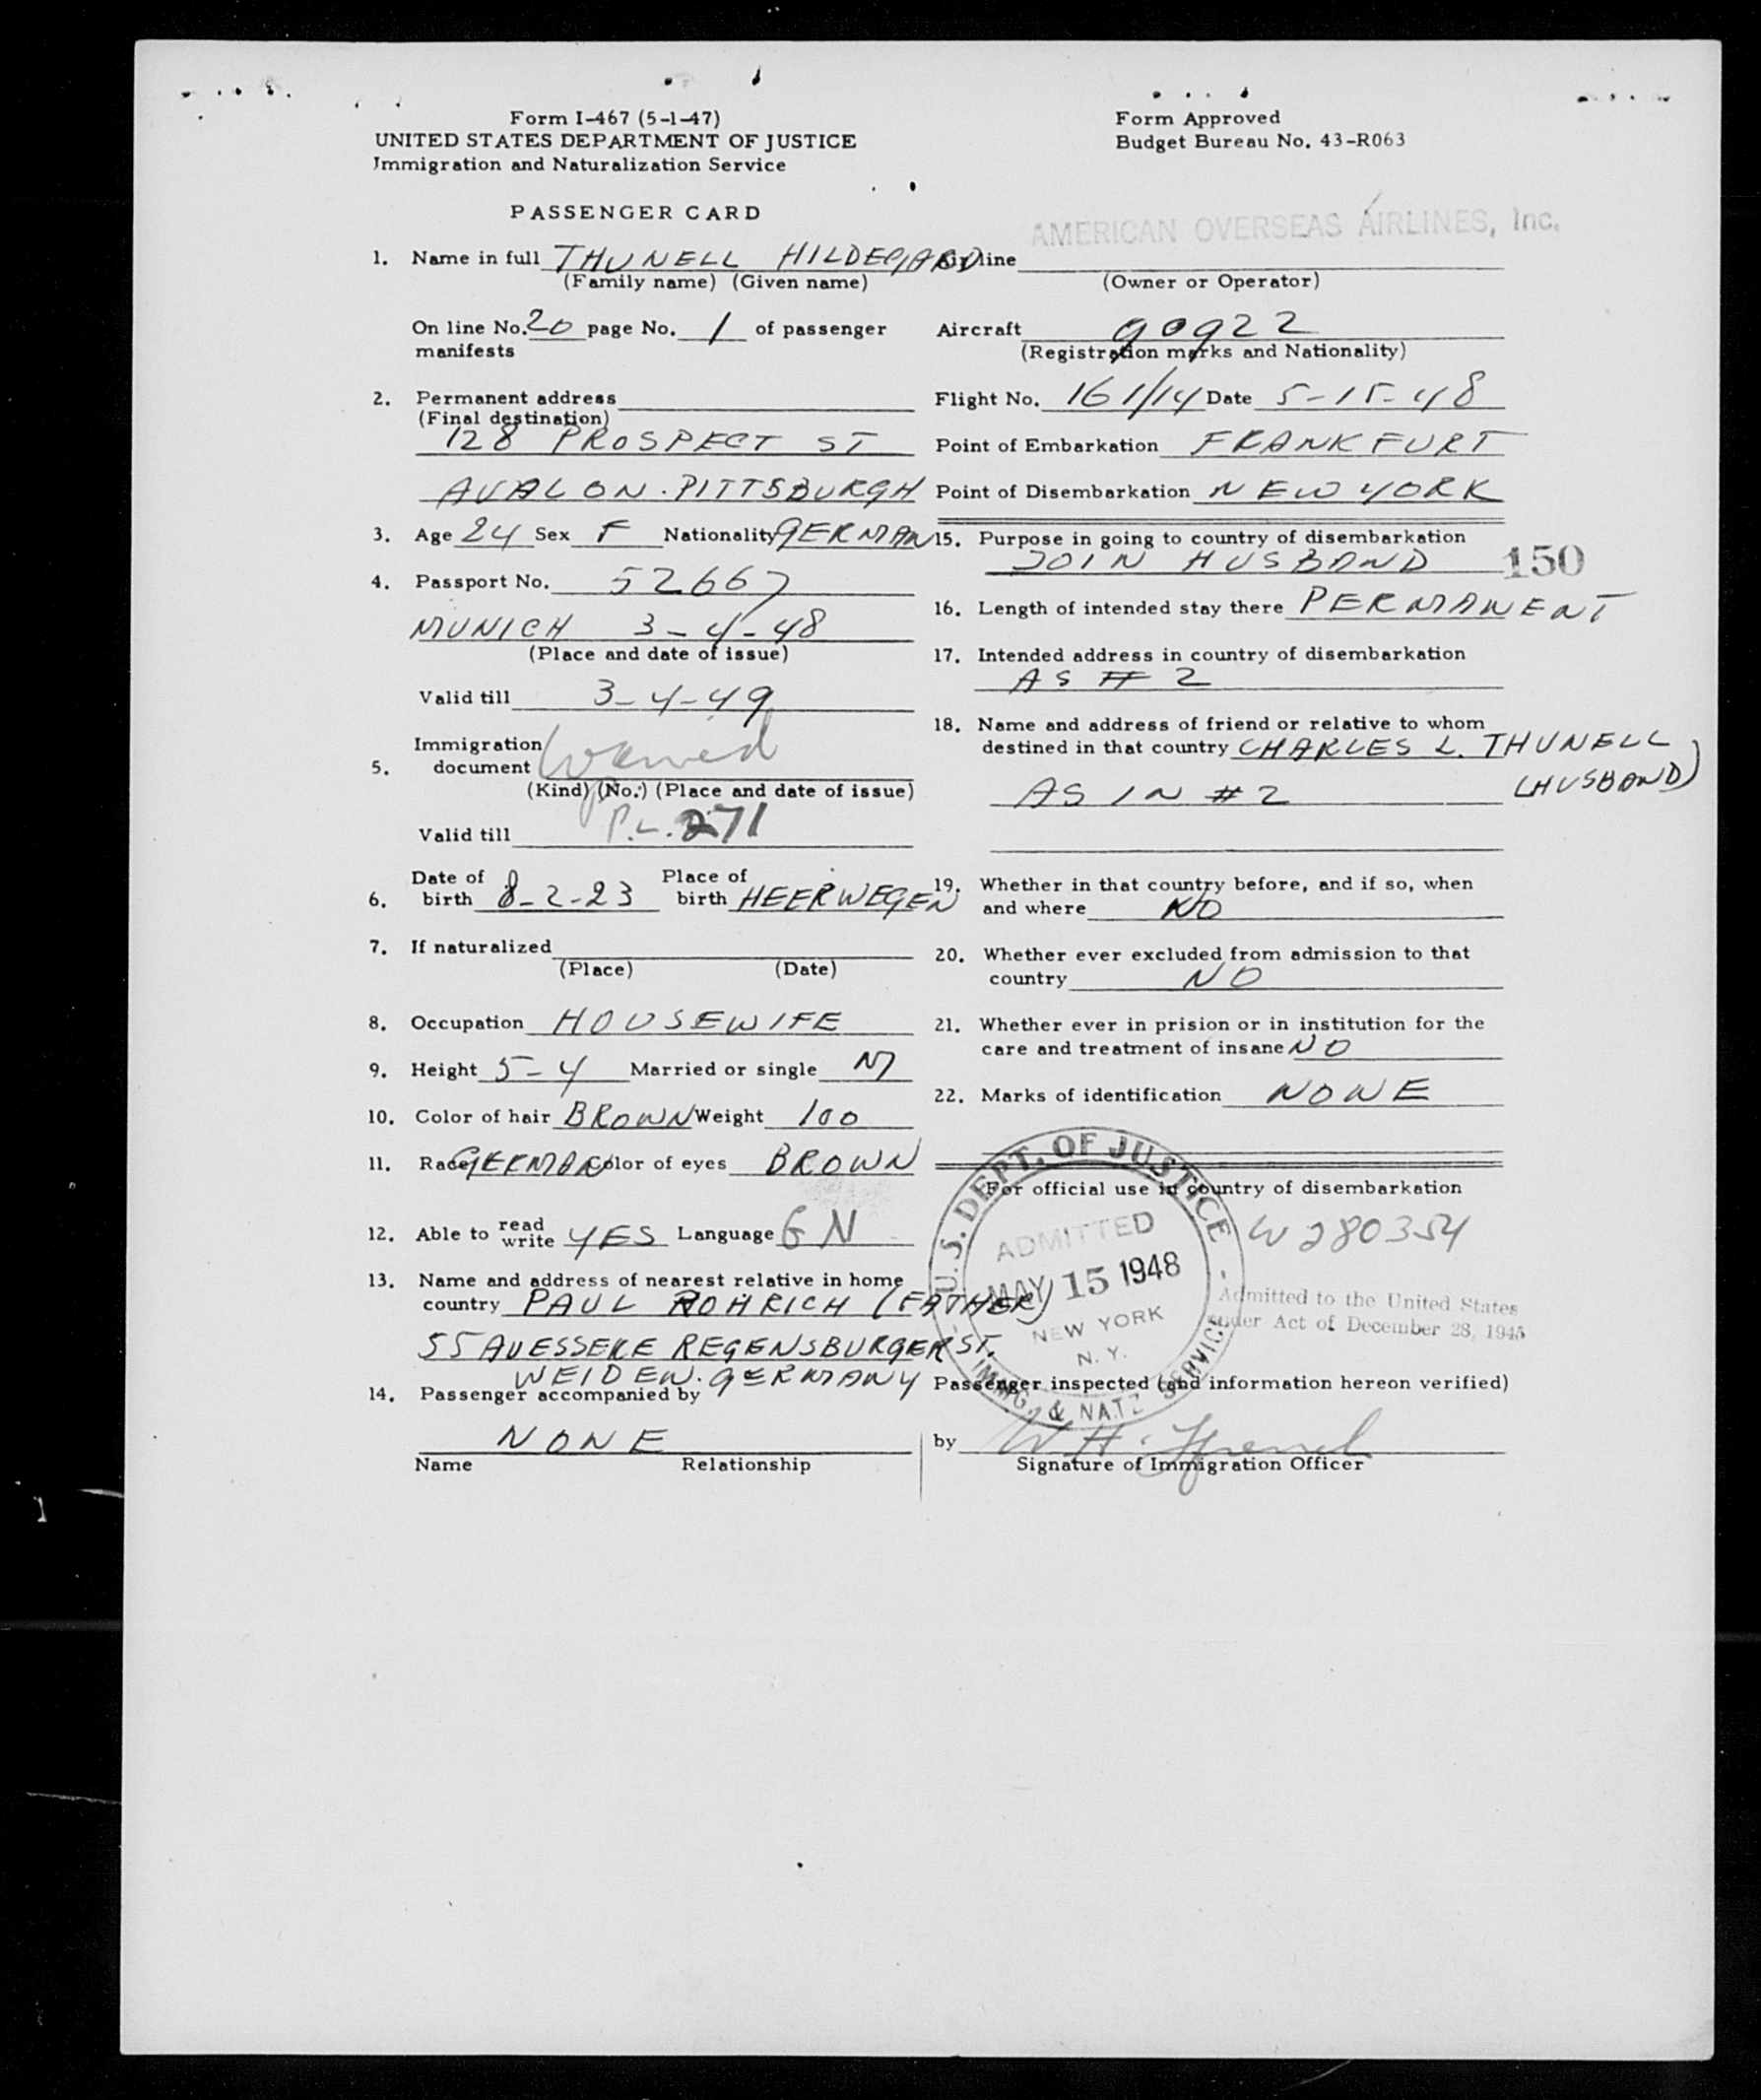 Form I-467 (5-1-47)
UNITED STATES DEPARTMENT OF JUSTICE
Immigration and Naturalization Service
Form Approved
Budget Bureau No. 43-R063
PASSENGER CARD
AMERICAN OVERSEAS AIRLINES, Inc.
1. Name in full THUNELL HILDEGARD
(Family name) (Given name)
On line No. 20 page No. 1 of passenger
manifests
2. Permanent address
(Final destination)
128 PROSPECT ST
AVALON. PITTSBURGH
3. Age 24 Sex F Nationality GERMAN
4. Passport No. 52667
MUNICH 3-4-48
(Place and date of issue)
Valid till 3-4-49
Immigration
5. document Waived
(Kind) (No.) (Place and date of issue)
P.L. 271
Valid till
Date of Place of
6. birth 8-2-23 birth HEERWEGEN
7. If naturalized
(Place) (Date)
8. Occupation HOUSEWIFE
9. Height 5-4 Married or single M
10. Color of hair BROWN Weight 100
11. Race GERMAN Color of eyes BROWN
12. Able to read write YES Language GN
13. Name and address of nearest relative in home
country PAUL ROHRICH (FATHER)
55 REGENSBURGER ST.
WEIDEN. GERMANY
14. Passenger accompanied by
NONE
Name Relationship
Airline
(Owner or Operator)
Aircraft 90922
(Registration marks and Nationality)
Flight No. 161/14 Date 5-15-48
Point of Embarkation FRANKFURT
Point of Disembarkation NEW YORK
15. Purpose in going to country of disembarkation
JOIN HUSBAND 150
16. Length of intended stay there PERMANENT
17. Intended address in country of disembarkation
AS # 2
18. Name and address of friend or relative to whom
destined in that country CHARLES L. THUNELL
(HUSBAND)
AS IN #2
19. Whether in that country before, and if so, when
and where NO
20. Whether ever excluded from admission to that
country NO
21. Whether ever in prision or in institution for the
care and treatment of insane NO
22. Marks of identification NONE
For official use in country of disembarkation
U.S. DEPT. OF JUSTICE
ADMITTED
MAY 15 1948
NEW YORK
N. Y.
IMMIG. & NATZ SERVICE
W280354
Admitted to the United States
under Act of December 28, 1945
Passenger inspected (and information hereon verified)
by W H.
Signature of Immigration Officer